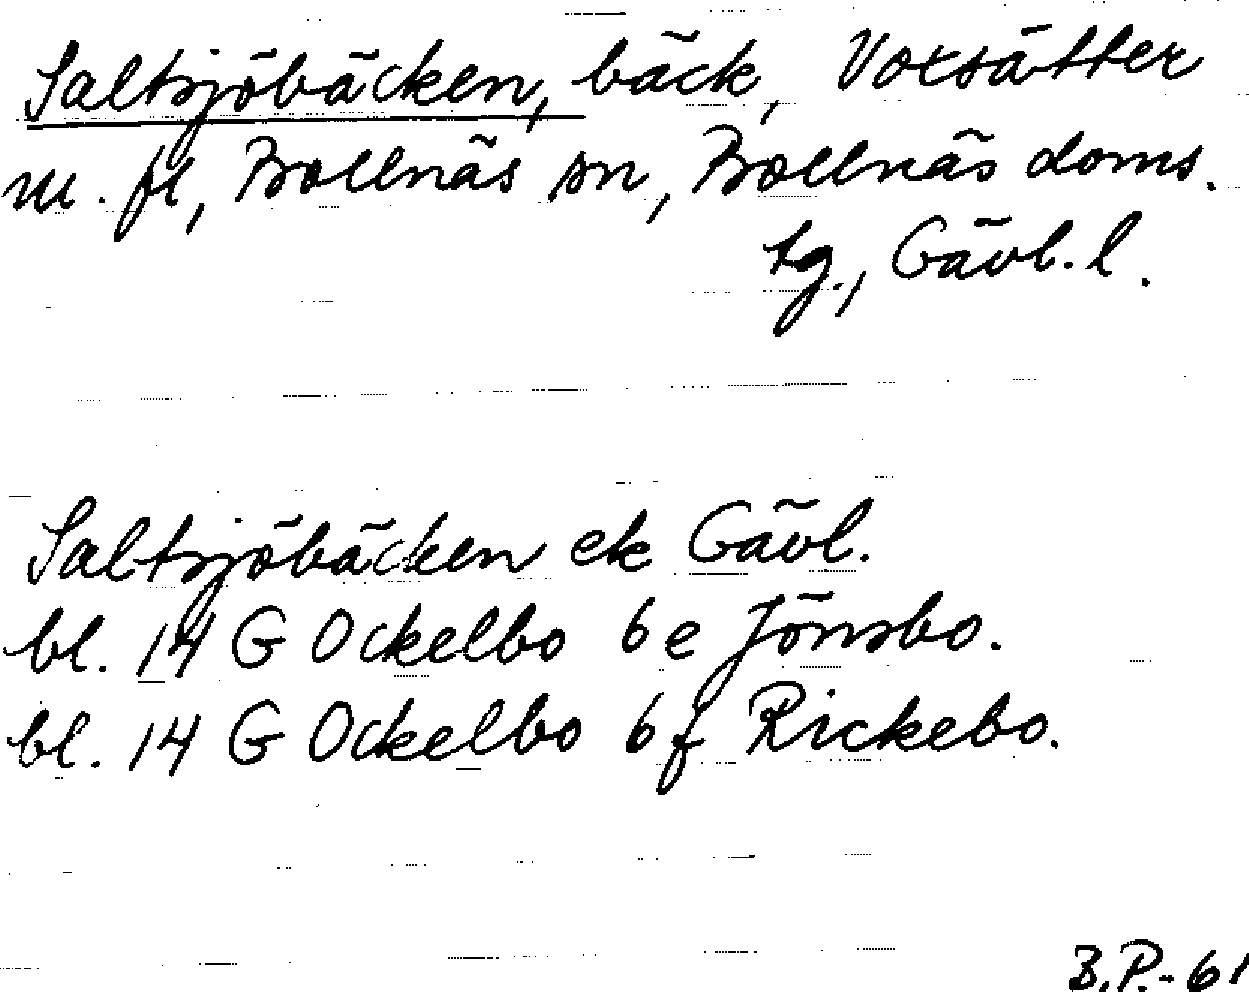 Saltsjöbäcken, bäck, Voxsätter
m. fl, Bollnäs sn, Bollnäs doms.
tg., Gävl. l.
Saltsjöbäcken ek Gävl.
bl. 14 G Ockelbo 6e Jönsbo.
bl. 14 G Ockelbo 6f Rickebo.
B.P.-61